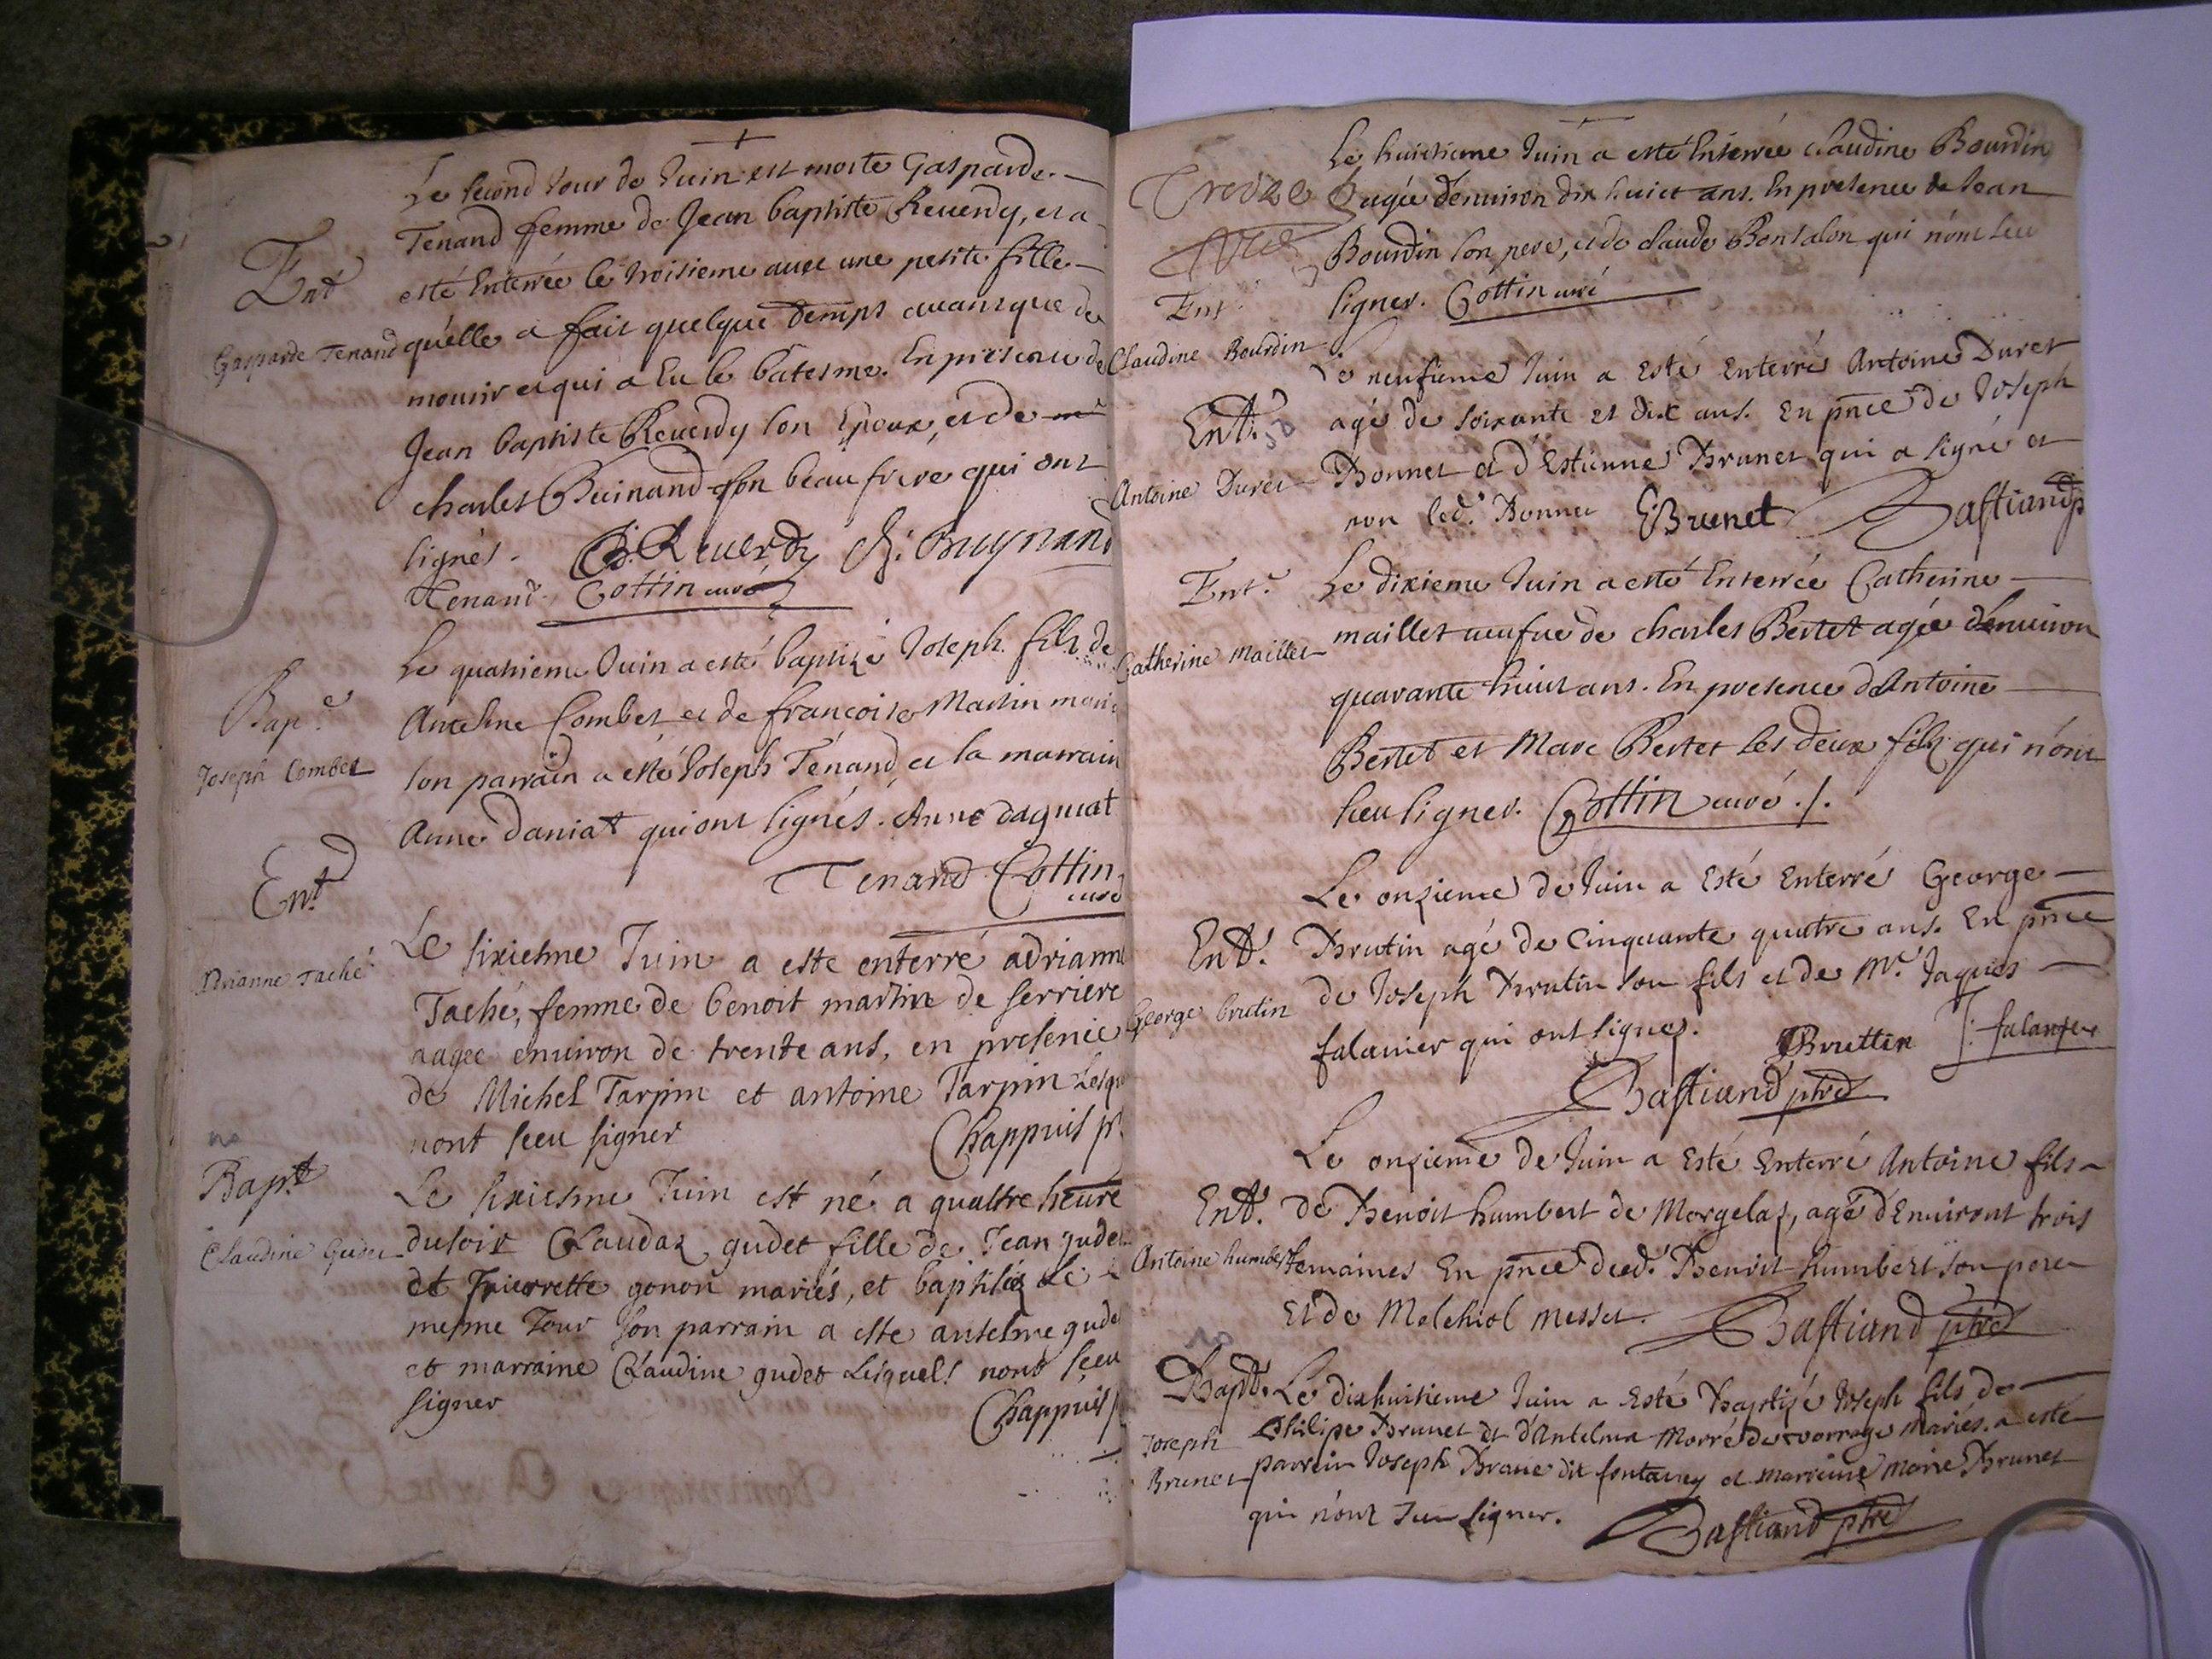 Le second Jour de Juin est morte Gasparde
Tenand femme de Jean baptiste Reuerdy, et a
Ent
esté Enterrée le troisieme auec une petite fille
Gasparde Tenand
qu'elle a fait quelque temps auansque de
mourir et qui a Eu le batesme. En presence de
Jean baptiste Reuerdy son Epoux, et de
charles Buinand son beau frere qui ont
signés. Reuerdy Ch: Buynand
Tenand Cottin curé
Le quatrieme Juin a esté baptizé Joseph fils de
Bap.e
Antelme Combet et de francoise Martin mariés
Joseph Combet
son parrain a esté Joseph Tenand et la marrain
Anne Daniat qui ont signés. Anne dagniat
Tenand Cottin
curé
Ent
Le sixiesme Juin a este enterré adrianne
Adrianne Taché
Taché, femme de benoit martin de serriere
aagee enuiron de trente ans, en presence
de Michel Tarpin et antoine Tarpin Lesq
nont sceu signer Chappuis p.
no
Bapt
Le sixiesme Juin est né a quattre heure
Claudine Gudet
du soir Claudaz gudet fille de Jean gudet
et Pierrette gonon mariés, et baptisée Le
mesme Jour son parrain a este antelme gudet
et marraine Claudine gudet Lesquels nont sceu
signer Chappuis
Le huictieme Juin a esté Enterrée claudine Bourdin
Treize
agée d'enuiron dix huict ans. En presence de Jean
Bourdin son pere, et de claude Bonsalon qui n'ont sceu
Ent.
signer. Cottin curé
Claudine Bourdin
Le neufieme Juin a Esté Enterré Antoine Duret
Ent.
agé de soixante et dix ans. En pnce de Joseph
Antoine Duret
Bonnet et d'Estienne Brunet qui a signé et
non led. Bonnet EBrunet Bastiand p
Ent.
Le dixieme Juin a esté Enterrée Catherine
Catherine Maillet
maillet ueufue de charles Bertet agée d'enuiron
quarante huict ans. En presence d'Antoine
Bertet et Marc Bertet ses deux fils qui n'ont
sceu signer. Cottin curé ./.
Le onzieme de Juin a Esté Enterré George
Ent.
Brutin agé de Cinquante quatre ans. En pnce
George brutin
de Joseph Brutin son fils et de Mr. Jaques
falanier qui ont signes. Bruttin J: falanier
Bastiand ptre
Le onzieme de Juin a Esté Enterré Antoine fils
Ent.
de Benoit humbert de Morgelaz, agé d'Enuiront trois
Antoine humbert
semaines En pnce dud. Benoit humbert son pere
Et de Melchiol messet. Bastiand ptre
no
Bapt.
Le dixhuitieme Juin a Esté Baptizé Joseph fils de
Joseph Brunet
Philipe Brunet et d'Antelma Morré de uorrage Mariés. a esté
parrein Joseph Braue dit fontaney et marreine Marie Brunet
qui n'ont sceu signer. Bastiand ptre